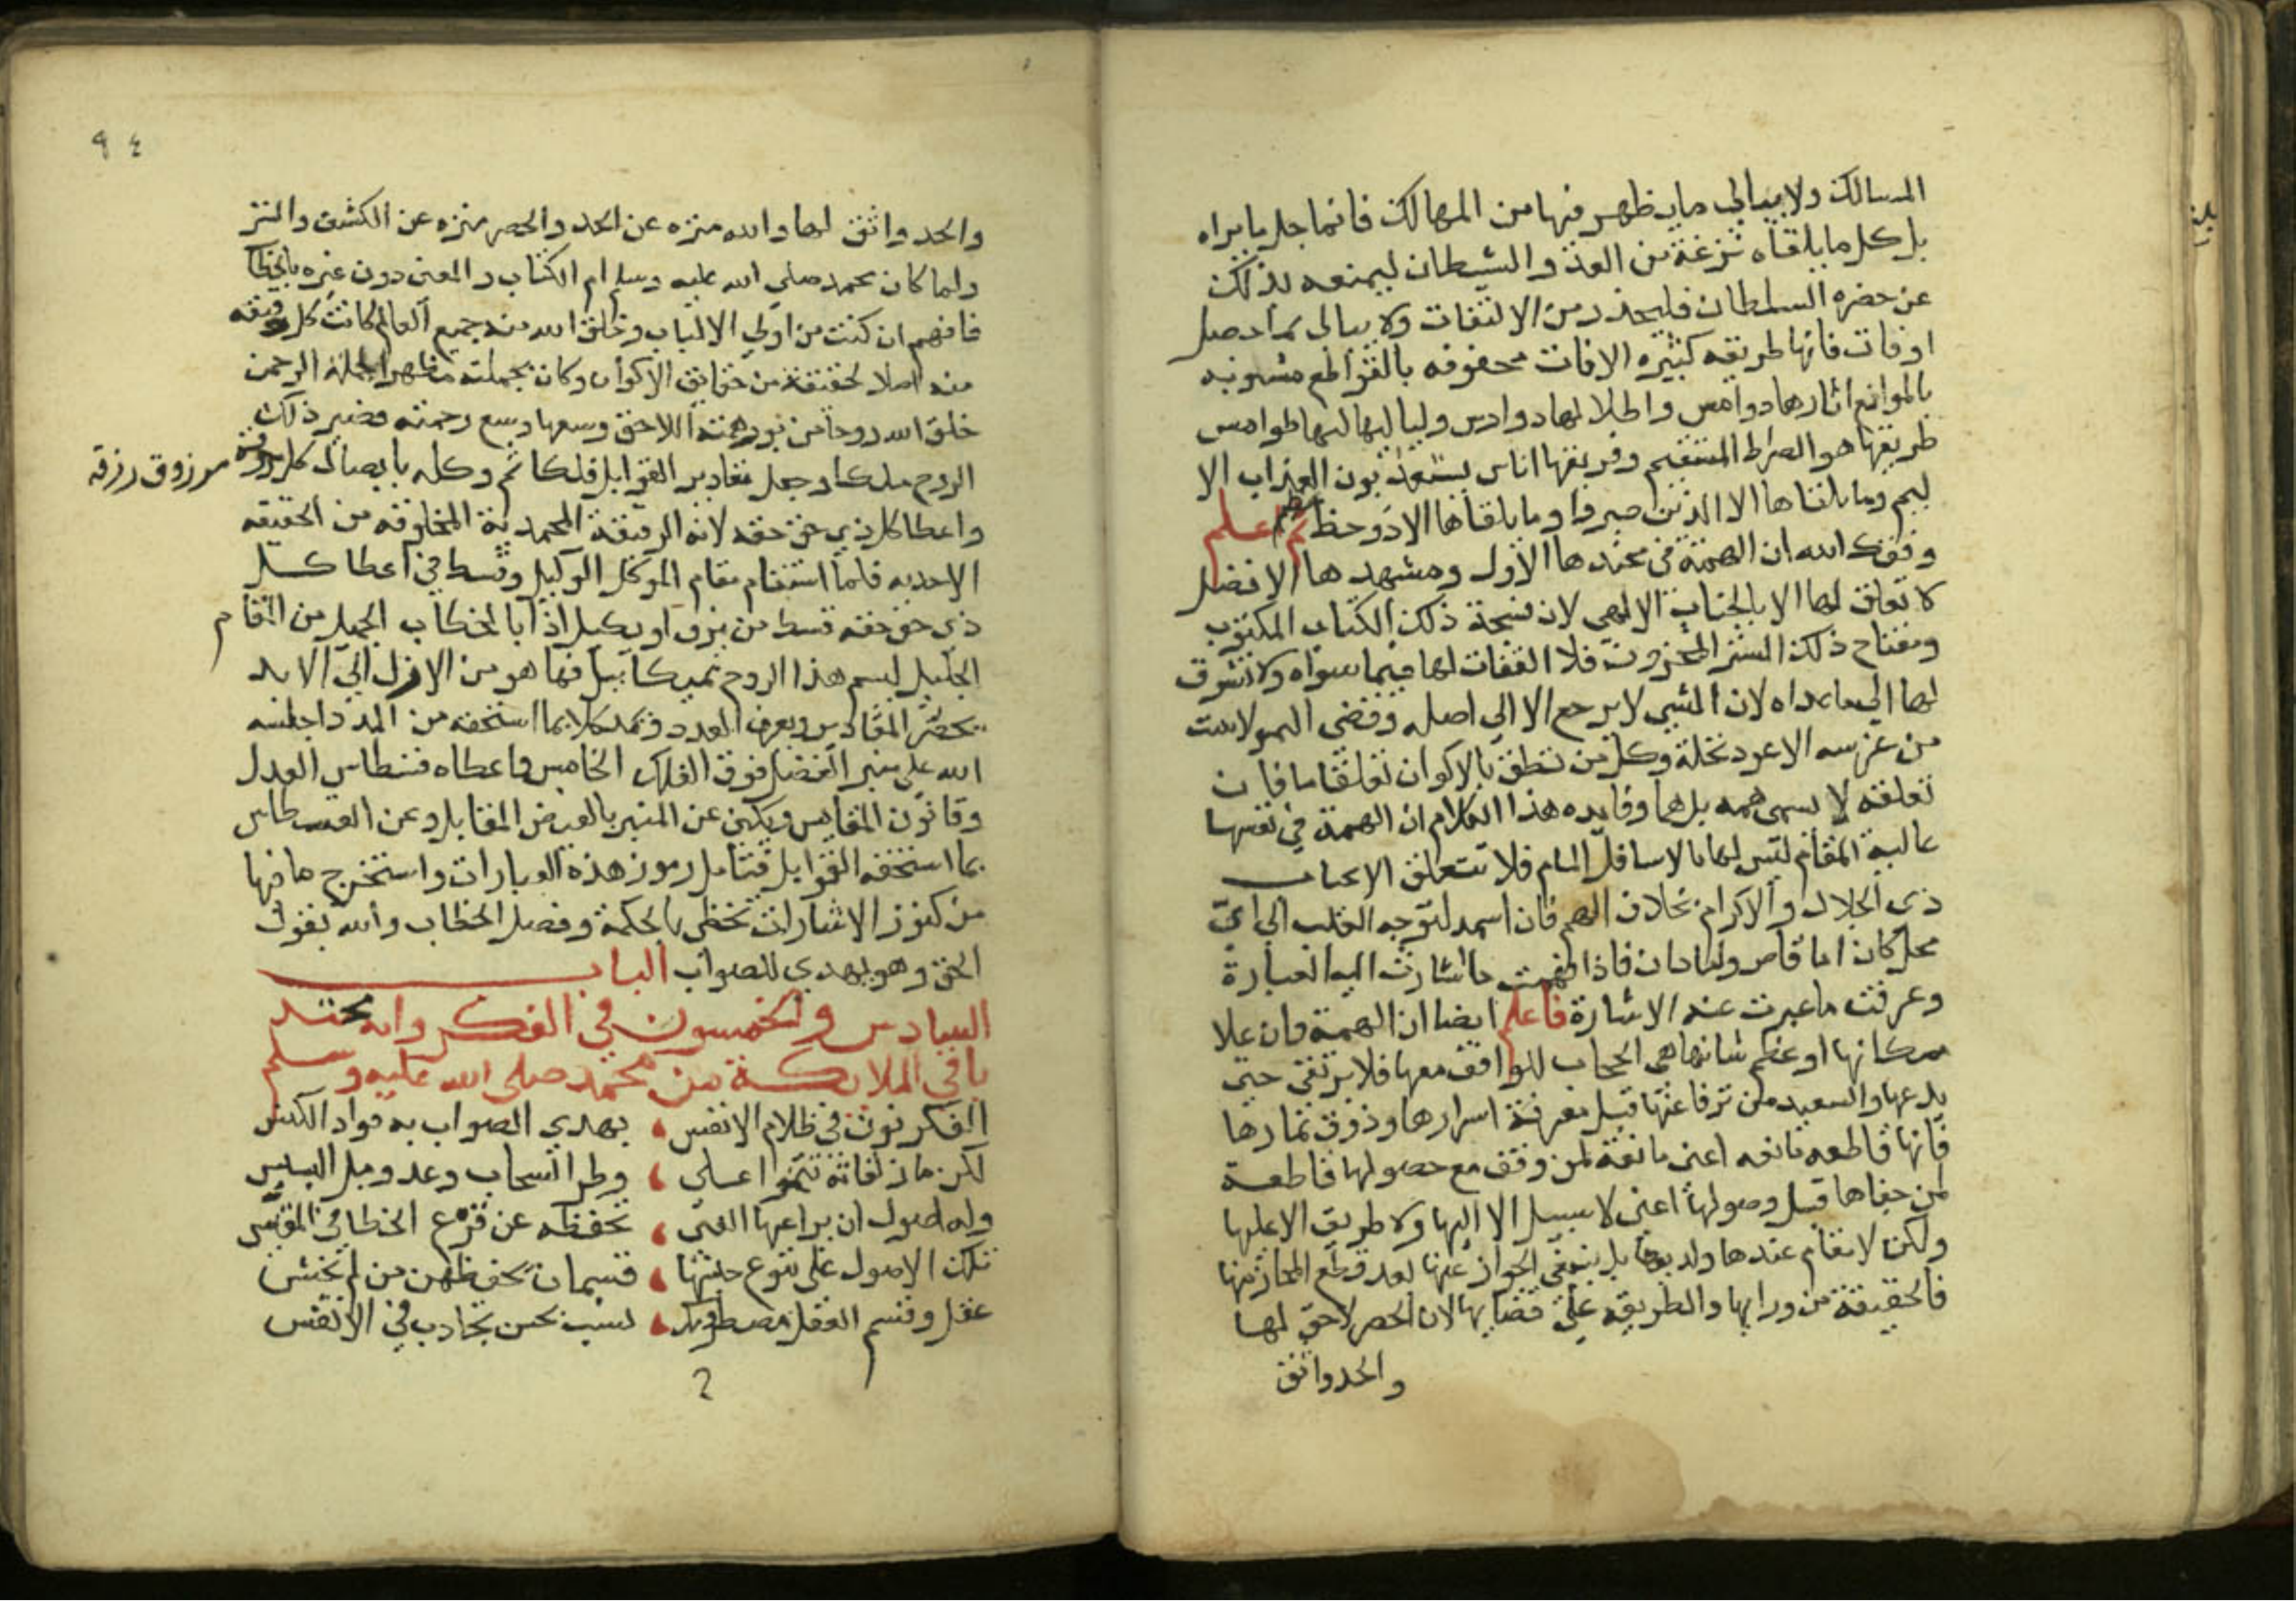 المسالك ولا يبالي مايظهر فيها من المهالك فانما جل ما يراه
بل كل ما يلقاه نزغة من العدو الشيطان ليمنعه بذلك
عن حضره السلطان فليحذر من الالتفات ولا يبالي بما حصل
او فات فانها طريقه كثيره الافات محفوفه بالقواطع مشوبه
بالموانع اثارها دوامس واطلالها دوارس ولياليها لها طوامس
طريقها هو الصراط المستقيم وفريقها اناس يستعذبون العذاب الا
ليم وما يلقاها الا الذين صبروا وما يلقاها الا ذو حظ عظيم ثم اعلم
وفقك الله ان الهمة في محتدها الاول ومشهدها الافضل
لا تعلق لها الا بالجناب الالهي لان نسخة ذلك الكتاب المكنون
ومفتاح ذلك السر المخزون فلا التفات لها فيما سواه ولا تشوق
لها الي ما عداه لان الشي لا يرجع الا الي اصله وقضى
من غرسه الا عود نخلة وكل من تعلق بالاكوان تعلقا ما فان
تعلقه لا يسمى همه بل هما وفايده هذا الكلام ان الهمة في نفسها
عالية المقام ليس لها بالاسافل المام فلا تتعلق الا بجناب
ذي الجلال والاكرام بخلاف الهم فان اسم لتوجه القلب الي اي
محل كان اما قاص واما دان فاذا فهمت ما اشارت اليه العبارة
وعرفت ما عبرت عنه الاشارة فاعلم ايضا ان الهمة وان علا
مكانها او عظم شانها هي الحجاب للواقف معها فلا يرتقى حتي
يدعها والسعيد من ترقا عنها قبل معرفة اسرارها وذوق ثمارها
فانها قاطعه مانعه اعني مانعة لمن وقف مع حصولها قاطعة
لمن جفاها قبل وصولها اعني لا سبيل الا اليها ولا طريق الا عليها
ولكن لا مقام عندها ولديها بل ينبغي الجواز عنها بعد قطع المجاز منها
فالحقيقة من ورايها والطريقه على فضايها لان الحصر لاحق لها
والحد واثق
٩٤
والحد واثق لها والله منزه عن الحد والحصر منزه عن الكشف والستر
ولما كان محمد صلي الله عليه وسلم ام الكتاب والمعنى دون غيره بالخطاب
فافهم ان كنت من اولي الالباب وخلق الله منه جميع العالم كانت كل رقيقه
منه اصلا لحقيقة من حقايق الاكوان وكان بجملته مظهرا لجملة الرحمن
خلق الله روحا من نور همته اللاحق وسعها وسع رحمته فصير ذلك
الروح ملكا وجعل مقادير القوابل فلكا ثم وكله بايصال كل مرزوق رزقه
واعطا كل ذي حق حقه لانه الرقيقة المحمدية المخلوقه من الحقيقه
الاحديه فلما استقام مقام الموكل الوكيل وقسط في اعطا كل
ذي حق حقه قسط من يزن او يكيل اذا بالخطاب الجميل من المقام
الجليل ليسم هذا الروح بميكاييل فها هو من الازل الي الابد
يحصر المقادير ويعرف العدد ويمد كلا بما استحقه من المدد اجلسه
الله علي منبر الفضل فوق الفلك الخامس واعطاه قسطاس العدل
وقانون المقايس ويكني عن المنبر بالفيض المقابل وعن القسطاس
بما استحقه القوابل فتامل رموز هذه العبارات واستخرج ما فيها
من كنوز الاشارات تحظى بالحكمة وفصل الخطاب والله يقول
الحق وهو يهدي للصواب الباب
السادس والخمسون في الفكر وانه محتد
باقي الملايكة من محمد صلي الله عليه وسلم
الفكر نور في ظلام الانفس ، يهدي الصواب به فواد الكيس
لكن ، وطر السحاب وعد ومل البسبس
وله اصول ان يراعيها الفتى ، تحفظه عن الخطا في المقبس
تلك الاصول على تنوع جنسها ، قسمان يحفظهن من لم يخنس
عقل وقسم العقل ، لسبب يحس بجادب في الانفس